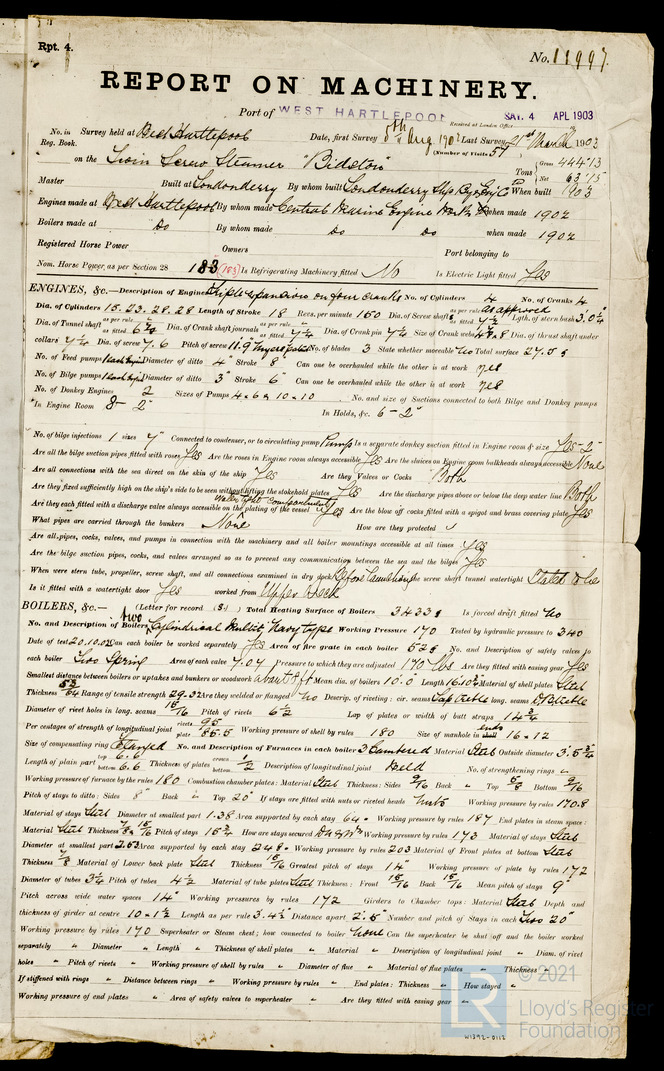 Rpt. 4.
No. 11997.
REPORT ON MACHINERY.
Port of WEST HARTLEPOOL
Received at London Office SAT. 4 APL 1903
No. in Survey held at West Hartlepool Date, first Survey 5th Aug 1902 Last Survey 21st March 1903
Reg. Book. (Number of Visits 57
on the Twin Screw Steamer "Bidston" Tons Gross 444.13 Net 63.15
Master Built at Londonderry By whom built Londonderry When built 1903
Engines made at West Hartlepool By whom made Central Marine Engine Works when made 1902
Boilers made at Do By whom made Do Do when made 1902
Registered Horse Power Owners Port belonging to
Nom. Horse Power, as per Section 28 183 (183) Is Refrigerating Machinery fitted No Is Electric Light fitted Yes
ENGINES, &c.—Description of Engines Triple expansion on four cranks No. of Cylinders 4 No. of Cranks 4
Dia. of Cylinders 15. 23. 28. 28 Length of Stroke 18 Revs. per minute 160 Dia. of Screw shaft as per rule as approved as fitted 7½ Lgth. of stern bash 3.0¼
Dia. of Tunnel shaft as per rule as fitted Dia. of Crank shaft journals as per rule as fitted 7¼ Dia. of Crank pin 7¼ Size of Crank webs Dia. of thrust shaft under
collars 7¼ Dia. of screw 7.6 Pitch of screw 11.9 No. of blades 3 State whether moveable No Total surface
No. of Feed pumps Diameter of ditto 4" Stroke 8" Can one be overhauled while the other is at work yes
No. of Bilge pumps Diameter of ditto 3" Stroke 6" Can one be overhauled while the other is at work yes
No. of Donkey Engines 2 Sizes of Pumps 4 x 6 & 10 x 10 No. and size of Suctions connected to both Bilge and Donkey pumps
In Engine Room 8 - 2" In Holds, &c. 6 - 2"
No. of bilge injections 1 sizes 7" Connected to condenser, or to circulating pump Pump Is a separate donkey suction fitted in Engine room & size Yes-2"
Are all the bilge suction pipes fitted with roses Yes Are the roses in Engine room always accessible Yes Are the sluices on Engine room bulkheads always accessible None
Are all connections with the sea direct on the skin of the ship Yes Are they Valves or Cocks Both
Are they fixed sufficiently high on the ship's side to be seen without lifting the stokehold plates Yes Are the discharge pipes above or below the deep water line Both
Are they each fitted with a discharge valve always accessible on the plating of the vessel Yes Are the blow off cocks fitted with a spigot and brass covering plate Yes
What pipes are carried through the bunkers None How are they protected ✓
Are all pipes, cocks, valves, and pumps in connection with the machinery and all boiler mountings accessible at all times yes
Are the bilge suction pipes, cocks, and valves arranged so as to prevent any communication between the sea and the bilges Yes
When were stern tube, propeller, screw shaft, and all connections examined in dry dock Before launching Is the screw shaft tunnel watertight
Is it fitted with a watertight door Yes worked from Upper deck
BOILERS, &c.— (Letter for record (S) ) Total Heating Surface of Boilers Is forced draft fitted No
No. and Description of Boilers Two Cylindrical Multir Navy type Working Pressure 170 Tested by hydraulic pressure to 340
Date of test 20.10.02 Can each boiler be worked separately Yes Area of fire grate in each boiler No. and Description of safety valves to
each boiler Two Spring Area of each valve 7.07 Pressure to which they are adjusted 170 lbs Are they fitted with easing gear Yes
Smallest distance between boilers or uptakes and bunkers or woodwork about 8 ft Mean dia. of boilers 10.0 Length 16.10½ Material of shell plates Steel
Thickness 53/64 Range of tensile strength 29.32 Are they welded or flanged No Descrip. of riveting: cir. seams Lap treble long. seams
Diameter of rivet holes in long. seams 15/16 Pitch of rivets 6½ Lap of plates or width of butt straps 14¾
Per centages of strength of longitudinal joint rivets 95 plate 85.5 Working pressure of shell by rules 180 Size of manhole in ends 16 x 12
Size of compensating ring Flanged No. and Description of Furnaces in each boiler Material Steel Outside diameter 3.5¾
Length of plain part top 6.6 bottom 6.6 Thickness of plates crown bottom Description of longitudinal joint Weld No. of strengthening rings "
Working pressure of furnace by the rules 180 Combustion chamber plates: Material Steel Thickness: Sides 9/16 Back " Top 5/8 Bottom 9/16
Pitch of stays to ditto: Sides 8" Back " Top 20" If stays are fitted with nuts or riveted heads Nuts Working pressure by rules 170.8
Material of stays Steel Diameter at smallest part 1.38 Area supported by each stay 64" Working pressure by rules 187 End plates in steam space:
Material Steel Thickness Pitch of stays How are stays secured Working pressure by rules 173 Material of stays Steel
Diameter at smallest part Area supported by each stay 248" Working pressure by rules 203 Material of Front plates at bottom Steel
Thickness 7/8 Material of Lower back plate Steel Thickness 15/16 Greatest pitch of stays 14" Working pressure of plate by rules 172
Diameter of tubes 3¼ Pitch of tubes 4½ Material of tube plates Steel Thickness: Front 15/16 Back 15/16 Mean pitch of stays 9"
Pitch across wide water spaces 14" Working pressures by rules 172 Girders to Chamber tops: Material Steel Depth and
thickness of girder at centre 10 x 1½ Length as per rule 3.4½ Distance apart 2'.5" Number and pitch of Stays in each Two 20"
Working pressure by rules 170 Superheater or Steam chest; how connected to boiler None Can the superheater be shut off and the boiler worked
separately " Diameter " Length " Thickness of shell plates " Material " Description of longitudinal joint " Diam. of rivet
holes " Pitch of rivets " Working pressure of shell by rules " Diameter of flue " Material of flue plates " Thickness "
If stiffened with rings " Distance between rings " Working pressure by rules " End plates: Thickness " How stayed "
Working pressure of end plates " Area of safety valves to superheater " Are they fitted with easing gear "
© 2021
LR
Lloyd's Register
Foundation
W1392-0112